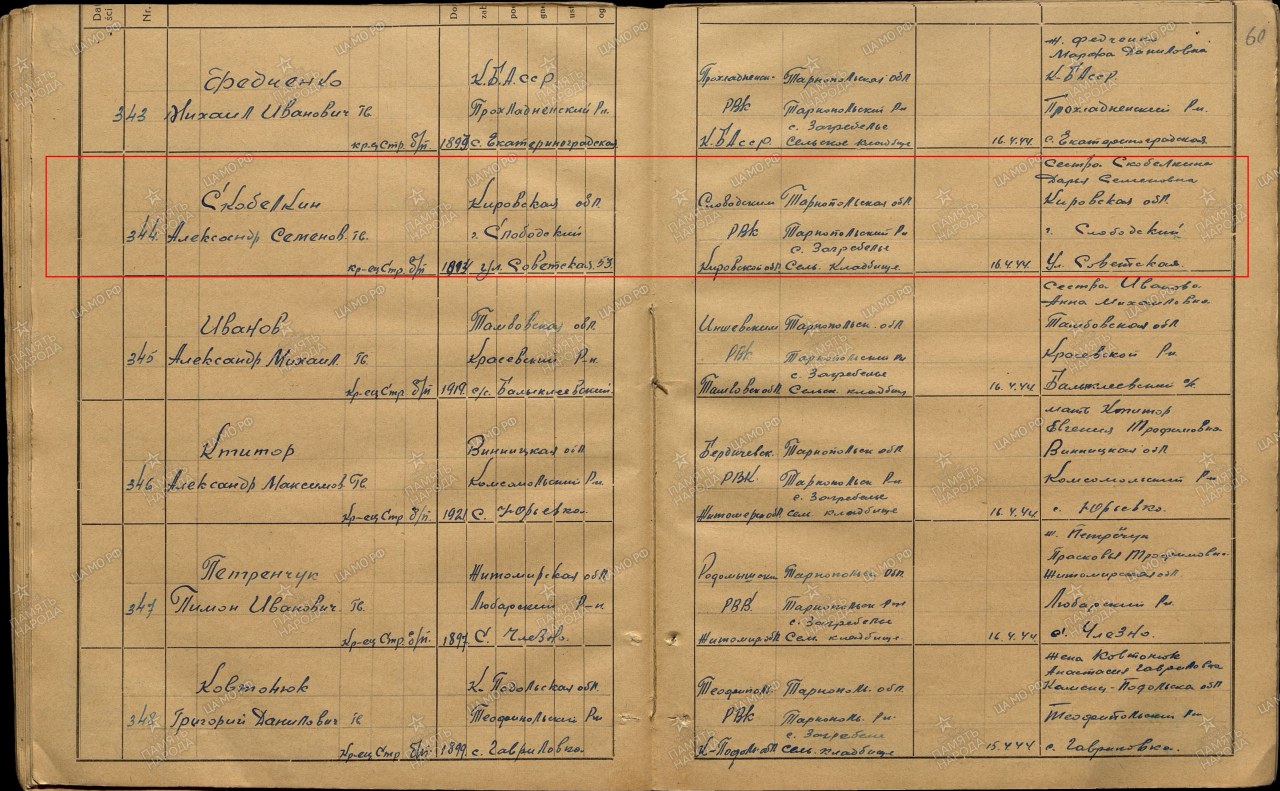 60
Nr.
343
Федченко
Михаил Иванович Гв.
кр-ец Стр. б/п
К.Б.Асср
Прохладненский Р-н.
с. Екатериноградская
Прохладненск.
РВК
К.Б.Асср.
Тарнопольская обл
Тарнопольский Р-н
с. Загребелье
Сельское кладбище
16.4.44.
ж. Федченко
Марфа Даниловна
К.Б.Асср.
Прохладненский Р-н.
с. Екатериноградская.
344.
Скобелкин
Александр Семенов. Гв.
кр-ец Стр. б/п
Кировская обл.
г. Слободский
ул. Советская 53.
Слободским
РВК
Кировской обл.
Тарнопольская обл
Тарнопольский Р-н
с. Загребелье
Сель. Кладбище
16.4.44.
Сестра Скобелкина
Дарья Семеновна
Кировская обл.
г. Слободский
Ул. Советская
345
Иванов
Александр Михаил. Гв.
Кр-ец Стр. б/п
1919.
Тамбовская обл.
Красевский Р-н
с/с. Балыклеевский.
РВК
Тамбовской обл.
Тарнопольск. обл.
Тарнопольский Р-н
с. Загребелье
Сельск. кладбищ
16.4.44
Сестра Иванова
Анна Михайловна
Тамбовская обл
Красевской Р-н
346
Ктитор
Александр Максимов Гв.
Кр-ец Стр. б/п.
1921
Винницкая обл
Комсомольский Р-н
с. Юрьевка.
Бердичевск.
РВК.
Тарнопольск обл
Тарнопольск Р-н
с. Загребелье
Сел. кладбище
16.4.44
мать Ктитор
Евгения Трофимовна
Винницкая обл
Комсомольский Р-н
с. Юрьевка.
347
Петренчук
Пимон Иванович Гв.
Кр-ец Стр. б/п.
1897
Житомирская обл
Любарский Р-н
Тарнопольск обл.
Тарнопольск Р-н
с. Загребелье
Сел. кладбище
16.4.44
Прасковья Трофимовн.
Житомирская обл
Любарский Р-н
348
Ковтонюк
Григорий Данилович Гв
Кр-ец Стр б/п
1899.
К-Подольская обл.
Теофипольский Р-н
с. Гавриловка.
Теофиполь.
РВК
К-Подол. обл
Тарнополь. обл.
Тарнополь. Р-н.
с. Загребелье
Сель. кладбище
15.4.44
Жена Ковтонюк
Анастасия Гавриловна
Каменец-Подольска обл
Теофипольский Р-н
ЦАМО.РФ
ПАМЯТЬ НАРОДА